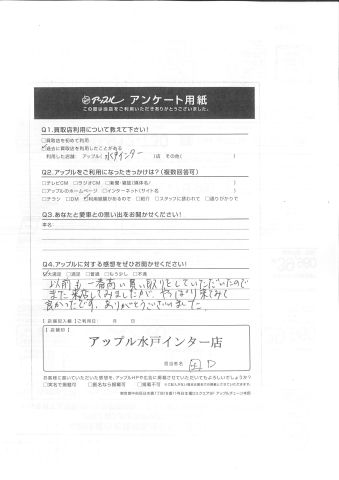 アップル アンケート用紙
この度は当店をご利用いただきありがとうございました。
Q1.買取店利用について教えて下さい！
□買取店を初めて利用
☑過去に買取店を利用したことがある
利用した店舗： アップル( 水戸インター )店 その他( )
Q2.アップルをご利用になったきっかけは？(複数回答可)
□テレビCM □ラジオCM □新聞・雑誌(媒体名/ )
□アップルのホームページ □インターネット(サイト名 )
□チラシ □DM ☑利用経験があるので □紹介 □スタッフに誘われて □通りがかりで
Q3.あなたと愛車との思い出をお聞かせください！
車名:
Q4.アップルに対する感想をぜひお聞かせください！
☑大満足 □満足 □普通 □もう少し □不満
以前も一番高い買い取りとしていただいたので
また来店してみましたが、やっぱり来てみて
良かったです。ありがとうございました。
【店舗記入欄】ご利用日: 月 日
【店舗印】
アップル水戸インター店
担当者名
お客様に書いていただいた感想を、アップルHPや広告に掲載させていただいてもよろしいでしょうか？
□実名で掲載可 □匿名なら掲載可 □掲載不可